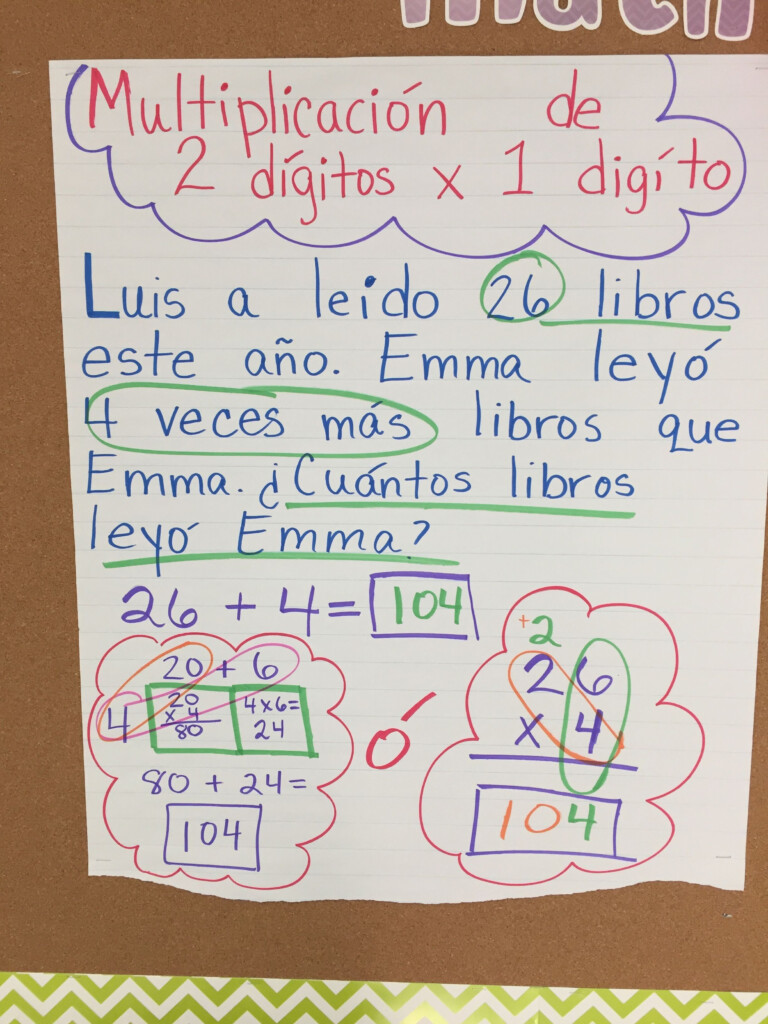 Multiplicación de
2 dígitos x 1 digíto
Luis a leido 26 libros
este año. Emma leyó
4 veces más libros que
Emma. ¿Cuántos libros
leyó Emma?
26 + 4 = 104
20 + 6
4
20
x 4
80
4x6=
24
80 + 24=
104
ó
+2
26
x 4
104